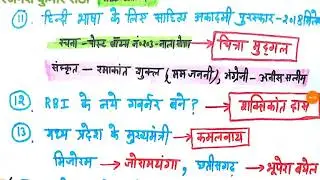 ⑪ हिन्दी भाषा के लिए साहित्य अकादमी पुरस्कार-2018
रचना-पोस्ट बॉक्स नं० 203-नाला सोपारा → चित्रा मुद्गल
संस्कृत - रमाकांत शुक्ल (मम जननी), अंग्रेजी - अनीस सलीम
⑫ RBI के नये गवर्नर बने? → शक्तिकांत दास
⑬ मध्य प्रदेश के मुख्यमंत्री → कमलनाथ
मिजोरम → जोरामथंगा, छत्तीसगढ़ → भूपेश बघेल